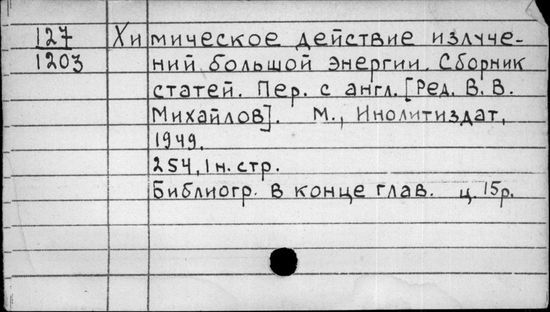 127
1203
Химическое действие излуче-
ний большой энергии. Сборник
статей. Пер. с англ. [Ред. В. В.
Михайлов]. М., Инолитиздат,
1949.
254, 1 н. стр.
Библиогр. в конце глав. ц. 15р.